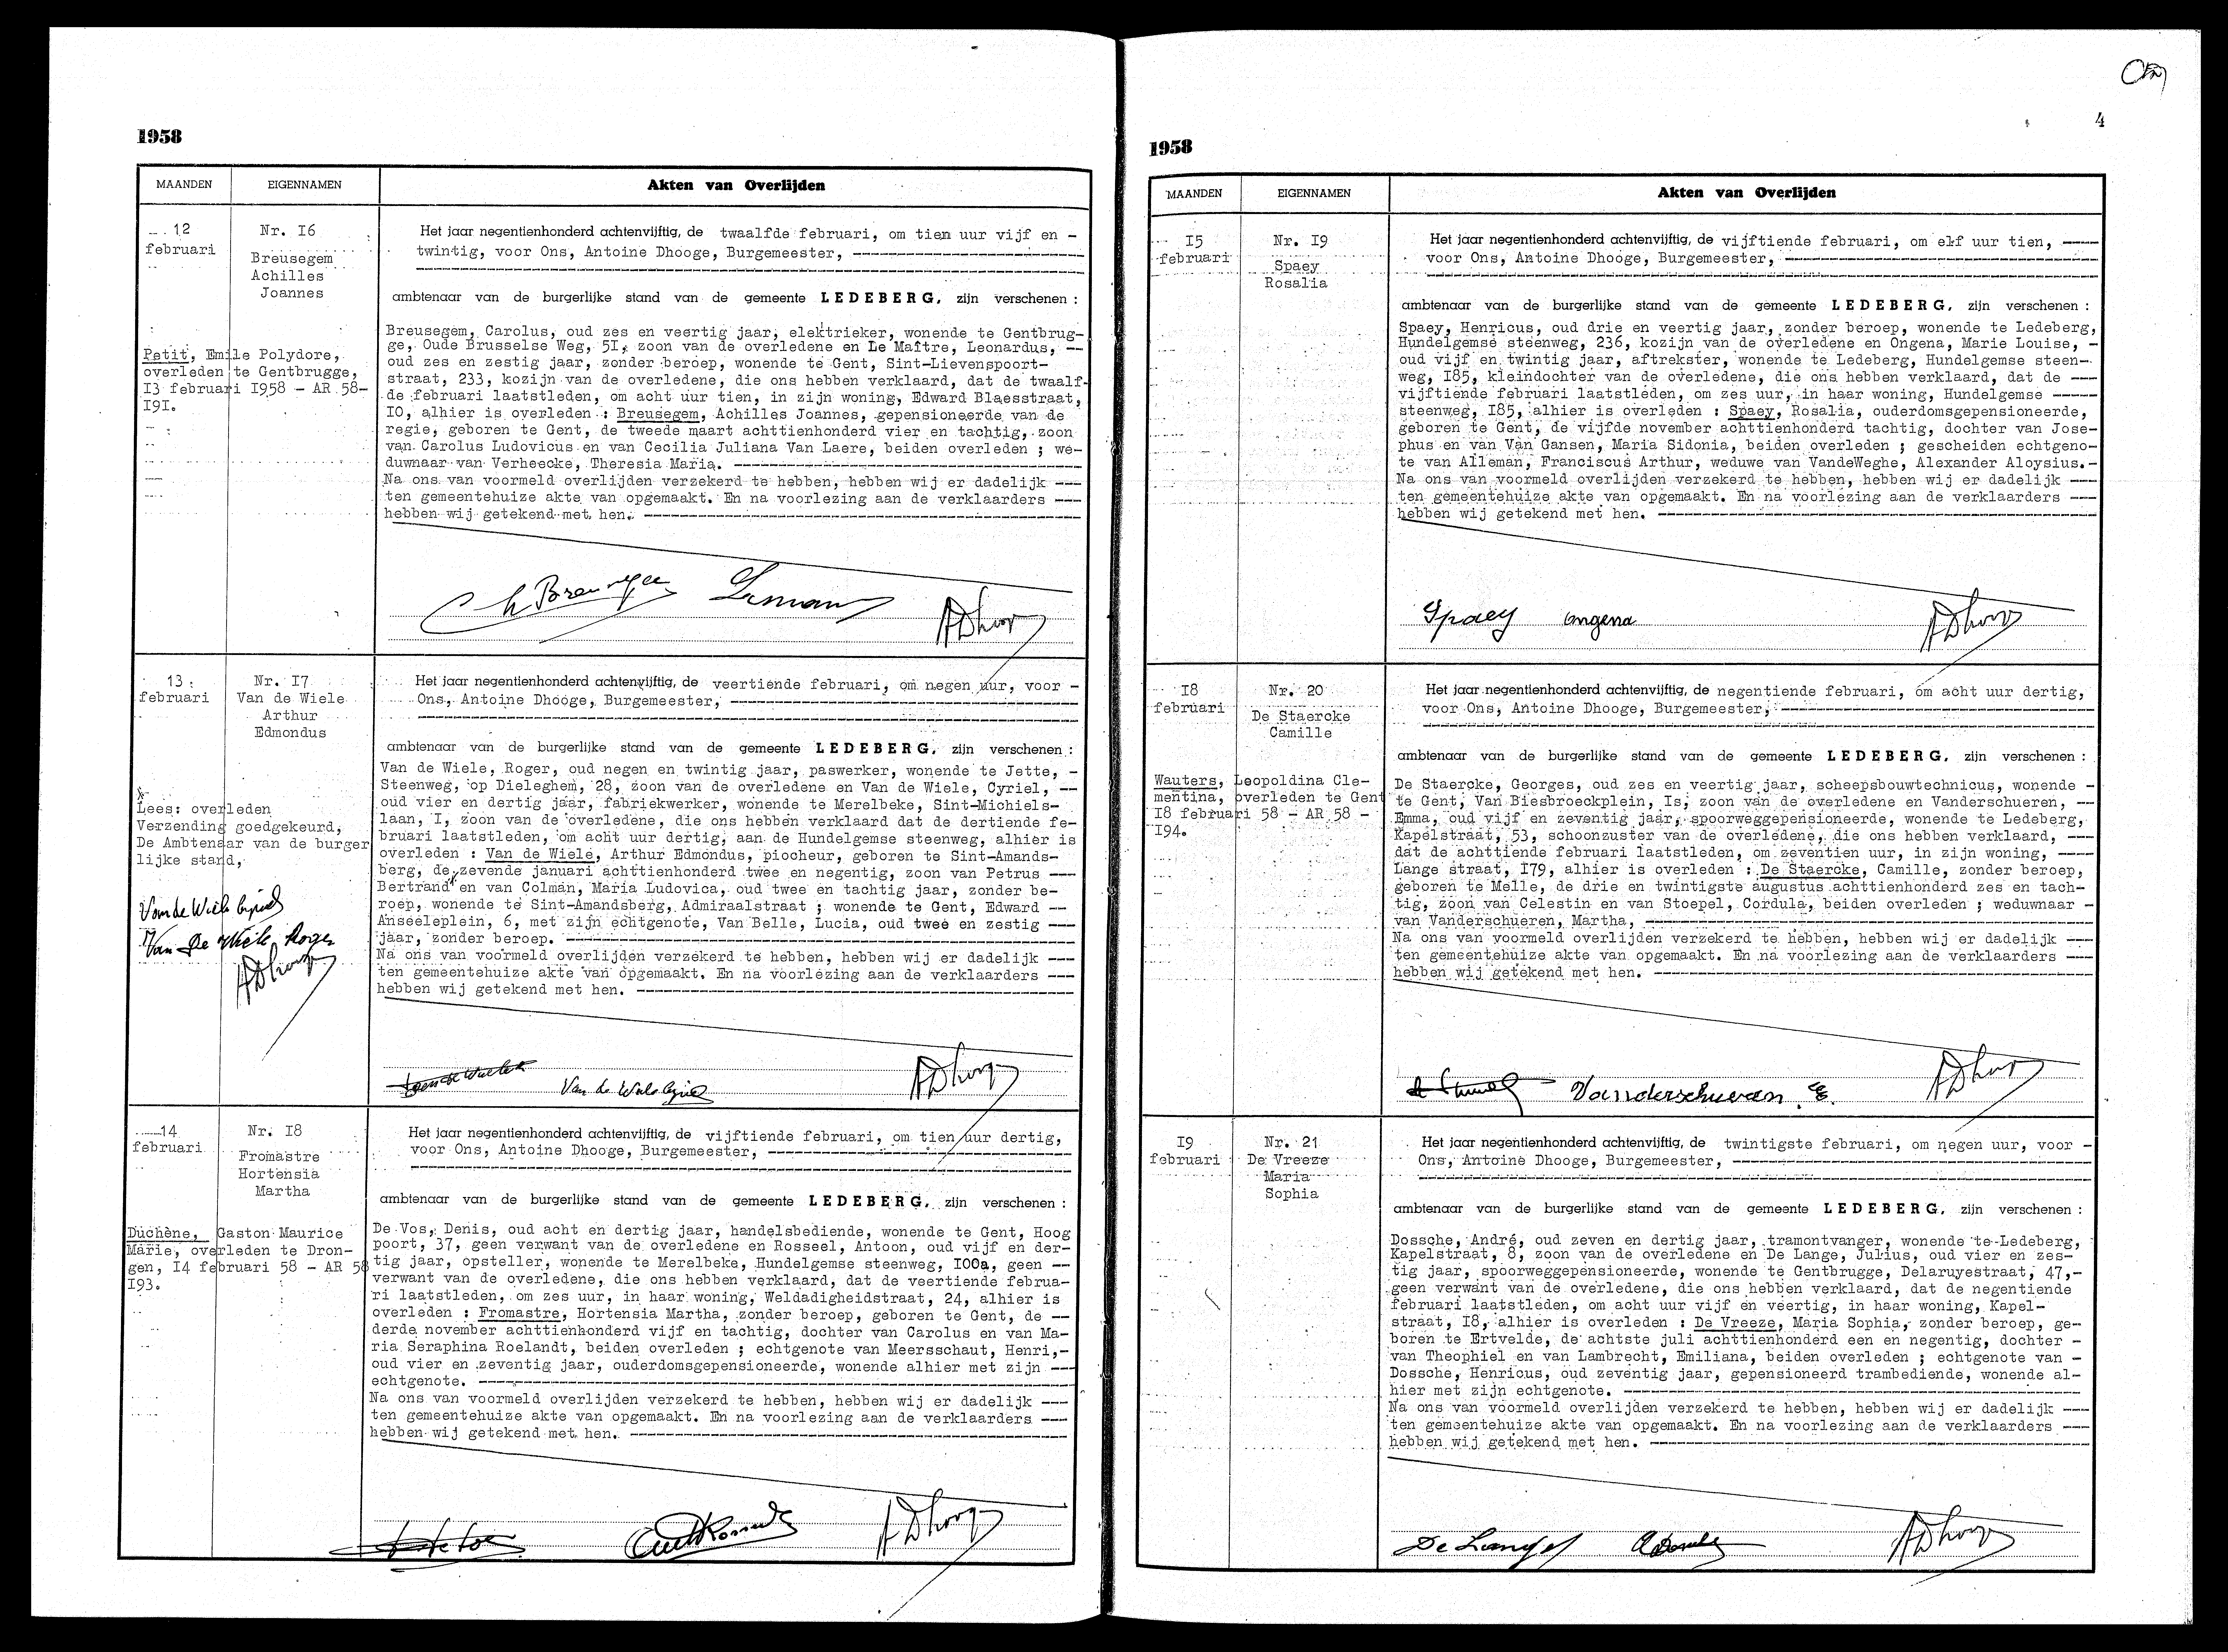 1958
MAANDEN
EIGENNAMEN
Akten van Overlijden
12
februari
Nr. I6
Breusegem
Achilles
Joannes
Petit, Emile Polydore,
overleden te Gentbrugge,
I3 februari I958 - AR 58-
I9I.
Het jaar negentienhonderd achtenvijftig, de twaalfde februari, om tien uur vijf en -
twintig, voor Ons, Antoine Dhooge, Burgemeester,
ambtenaar van de burgerlijke stand van de gemeente LEDEBERG, zijn verschenen :
Breusegem, Carolus, oud zes en veertig jaar, elektrieker, wonende te Gentbrug-
ge, Oude Brusselse Weg, 5I, zoon van de overledene en Le Maître, Leonardus, --
oud zes en zestig jaar, zonder beroep, wonende te Gent, Sint-Lievenspoort-
straat, 233, kozijn van de overledene, die ons hebben verklaard, dat de twaalf-
de februari laatstleden, om acht uur tien, in zijn woning, Edward Blaesstraat,
IO, alhier is overleden : Breusegem, Achilles Joannes, gepensioneerde van de
regie, geboren te Gent, de tweede maart achttienhonderd vier en tachtig, zoon
van Carolus Ludovicus en van Cecilia Juliana Van Laere, beiden overleden ; we-
duwnaar van Verheecke, Theresia Maria.
Na ons van voormeld overlijden verzekerd te hebben, hebben wij er dadelijk ---
ten gemeentehuize akte van opgemaakt. En na voorlezing aan de verklaarders ---
hebben wij getekend met hen.
Ch Breusegem
ADhooge
13
februari
Nr. I7
Van de Wiele
Arthur
Edmondus
Lees: overleden
Verzending goedgekeurd,
De Ambtenaar van de burger
lijke stand,
Van de Wiele Cyriel
Van De Wiele Roger
ADhooge
Het jaar negentienhonderd achtenvijftig, de veertiende februari, om negen uur, voor -
Ons, Antoine Dhooge, Burgemeester,
ambtenaar van de burgerlijke stand van de gemeente LEDEBERG, zijn verschenen :
Van de Wiele, Roger, oud negen en twintig jaar, paswerker, wonende te Jette, -
Steenweg, op Dieleghem, 28, zoon van de overledene en Van de Wiele, Cyriel, --
oud vier en dertig jaar, fabriekwerker, wonende te Merelbeke, Sint-Michiels-
laan, I, zoon van de overledene, die ons hebben verklaard dat de dertiende fe-
bruari laatstleden, om acht uur dertig, aan de Hundelgemse steenweg, alhier is
overleden : Van de Wiele, Arthur Edmondus, piocheur, geboren te Sint-Amands-
berg, de zevende januari achttienhonderd twee en negentig, zoon van Petrus ---
Bertrand en van Colman, Maria Ludovica, oud twee en tachtig jaar, zonder be-
roep, wonende te Sint-Amandsberg, Admiraalstraat ; wonende te Gent, Edward --
Anseeleplein, 6, met zijn echtgenote, Van Belle, Lucia, oud twee en zestig ---
jaar, zonder beroep.
Na ons van voormeld overlijden verzekerd te hebben, hebben wij er dadelijk ---
ten gemeentehuize akte van opgemaakt. En na voorlezing aan de verklaarders ---
hebben wij getekend met hen.
Van de Wiele Cyriel
ADhooge
14
februari
Nr. I8
Fromastre
Hortensia
Martha
Duchène, Gaston Maurice
Marie, overleden te Dron-
gen, I4 februari 58 - AR 58
I93.
Het jaar negentienhonderd achtenvijftig, de vijftiende februari, om tien uur dertig,
voor Ons, Antoine Dhooge, Burgemeester,
ambtenaar van de burgerlijke stand van de gemeente LEDEBERG, zijn verschenen :
De Vos, Denis, oud acht en dertig jaar, handelsbediende, wonende te Gent, Hoog
poort, 37, geen verwant van de overledene en Rosseel, Antoon, oud vijf en der-
tig jaar, opsteller, wonende te Merelbeke, Hundelgemse steenweg, I00a, geen --
verwant van de overledene, die ons hebben verklaard, dat de veertiende februa-
ri laatstleden, om zes uur, in haar woning, Weldadigheidstraat, 24, alhier is
overleden : Fromastre, Hortensia Martha, zonder beroep, geboren te Gent, de --
derde november achttienhonderd vijf en tachtig, dochter van Carolus en van Ma-
ria Seraphina Roelandt, beiden overleden ; echtgenote van Meersschaut, Henri,-
oud vier en zeventig jaar, ouderdomsgepensioneerde, wonende alhier met zijn ---
echtgenote.
Na ons van voormeld overlijden verzekerd te hebben, hebben wij er dadelijk ---
ten gemeentehuize akte van opgemaakt. En na voorlezing aan de verklaarders ---
hebben wij getekend met hen.
ADhooge
4
1958
MAANDEN
EIGENNAMEN
Akten van Overlijden
I5
februari
Nr. I9
Spaey
Rosalia
Het jaar negentienhonderd achtenvijftig, de vijftiende februari, om elf uur tien, ----
voor Ons, Antoine Dhooge, Burgemeester,
ambtenaar van de burgerlijke stand van de gemeente LEDEBERG, zijn verschenen :
Spaey, Henricus, oud drie en veertig jaar, zonder beroep, wonende te Ledeberg,
Hundelgemse steenweg, 236, kozijn van de overledene en Ongena, Marie Louise, -
oud vijf en twintig jaar, aftrekster, wonende te Ledeberg, Hundelgemse steen-
weg, I85, kleindochter van de overledene, die ons hebben verklaard, dat de ---
vijftiende februari laatstleden, om zes uur, in haar woning, Hundelgemse -----
steenweg, I85, alhier is overleden : Spaey, Rosalia, ouderdomsgepensioneerde,
geboren te Gent, de vijfde november achttienhonderd tachtig, dochter van Jose-
phus en van Van Gansen, Maria Sidonia, beiden overleden ; gescheiden echtgeno-
te van Alleman, Franciscus Arthur, weduwe van VandeWeghe, Alexander Aloysius.-
Na ons van voormeld overlijden verzekerd te hebben, hebben wij er dadelijk ---
ten gemeentehuize akte van opgemaakt. En na voorlezing aan de verklaarders ---
hebben wij getekend met hen.
Spaey Ongena ADhooge
I8
februari
Nr. 20
De Staercke
Camille
Wauters, Leopoldina Cle-
mentina, overleden te Gent
I8 februari 58 - AR 58 -
I94.
Het jaar negentienhonderd achtenvijftig, de negentiende februari, om acht uur dertig,
voor Ons, Antoine Dhooge, Burgemeester,
ambtenaar van de burgerlijke stand van de gemeente LEDEBERG, zijn verschenen :
De Staercke, Georges, oud zes en veertig jaar, scheepsbouwtechnicus, wonende -
te Gent, Van Biesbroeckplein, Is, zoon van de overledene en Vanderschueren, --
Emma, oud vijf en zeventig jaar, spoorweggepensioneerde, wonende te Ledeberg,
Kapelstraat, 53, schoonzuster van de overledene, die ons hebben verklaard, ---
dat de achttiende februari laatstleden, om zeventien uur, in zijn woning, ----
Lange straat, I79, alhier is overleden : De Staercke, Camille, zonder beroep,
geboren te Melle, de drie en twintigste augustus achttienhonderd zes en tach-
tig, zoon van Celestin en van Stoepel, Cordula, beiden overleden ; weduwnaar -
van Vanderschueren, Martha,
Na ons van voormeld overlijden verzekerd te hebben, hebben wij er dadelijk ---
ten gemeentehuize akte van opgemaakt. En na voorlezing aan de verklaarders ---
hebben wij getekend met hen.
Vanderschueren E. ADhooge
I9
februari
Nr. 21
De Vreeze
Maria
Sophia
Het jaar negentienhonderd achtenvijftig, de twintigste februari, om negen uur, voor -
Ons, Antoine Dhooge, Burgemeester,
ambtenaar van de burgerlijke stand van de gemeente LEDEBERG, zijn verschenen :
Dossche, André, oud zeven en dertig jaar, tramontvanger, wonende te Ledeberg,
Kapelstraat, 8, zoon van de overledene en De Lange, Julius, oud vier en zes-
tig jaar, spoorweggepensioneerde, wonende te Gentbrugge, Delaruyestraat, 47,-
geen verwant van de overledene, die ons hebben verklaard, dat de negentiende
februari laatstleden, om acht uur vijf en veertig, in haar woning, Kapel-
straat, I8, alhier is overleden : De Vreeze, Maria Sophia, zonder beroep, ge-
boren te Ertvelde, de achtste juli achttienhonderd een en negentig, dochter -
van Theophiel en van Lambrecht, Emiliana, beiden overleden ; echtgenote van -
Dossche, Henricus, oud zeventig jaar, gepensioneerd trambediende, wonende al-
hier met zijn echtgenote.
Na ons van voormeld overlijden verzekerd te hebben, hebben wij er dadelijk ---
ten gemeentehuize akte van opgemaakt. En na voorlezing aan de verklaarders ---
hebben wij getekend met hen.
De Lange ADossche ADhooge